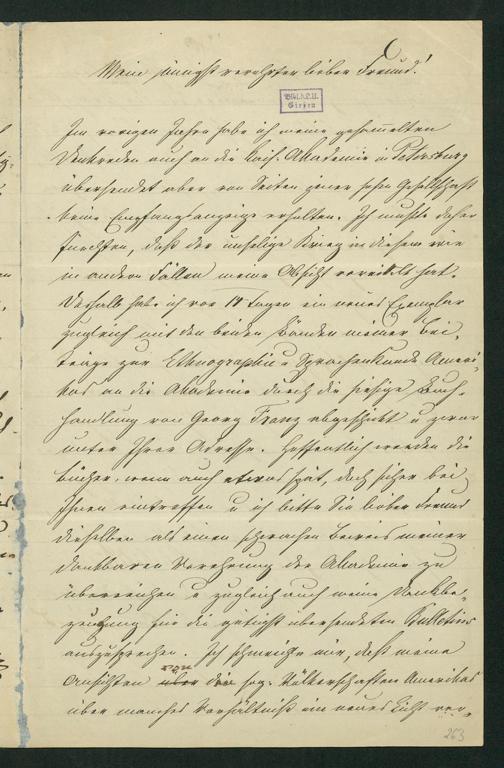 Mein innigst verehrter lieber Freund!
BIBL. A.L.U.
Giessen
Im vorigen Jahre habe ich meine gesammelten
Denkreden auch an die Kais. Akademie in Petersburg
übersendet aber von Seiten jener hohen Gesellschaft
keine Empfangsanzeige erhalten. Ich mußte daher
fürchten, daß der unselige Krieg in diesem wie
in andern Fällen meine Absicht vereitelt hat.
Deshalb habe ich vor 14 Tagen ein neues Exemplar
zugleich mit den beiden Bänden meiner Bei-
träge zur Ethnographie u Sprachenkunde Ameri-
kas an die Akademie durch die hiesige Buch-
handlung von Georg Franz abgeschickt u zwar
unter Ihrer Adresse. Hoffentlich werden die
Bücher, wenn auch etwas spät, doch sicher bei
Ihnen eintreffen u ich bitte Sie lieber Freund
dieselben als einen schwachen Beweis meiner
dankbaren Verehrung der Akademie zu
überreichen u zugleich auch meine Dankbe-
zeugung für die gütigst übersendeten Bulletins
auszusprechen. Ich schmeichle mir, daß meine
Ansichten über die von sog. Völkerschaften Amerikas
über manches Verhältniß ein neues Licht ver-
253